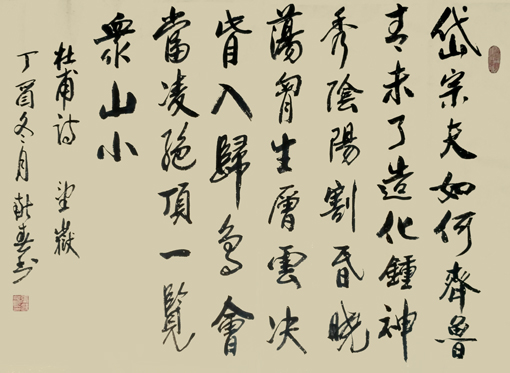 岱宗夫如何齊魯
青未了造化鍾神
秀陰陽割昏曉
蕩胷生層雲决
眥入歸鳥會
當凌絕頂一覽
衆山小
杜甫詩 望嶽
丁酉冬月